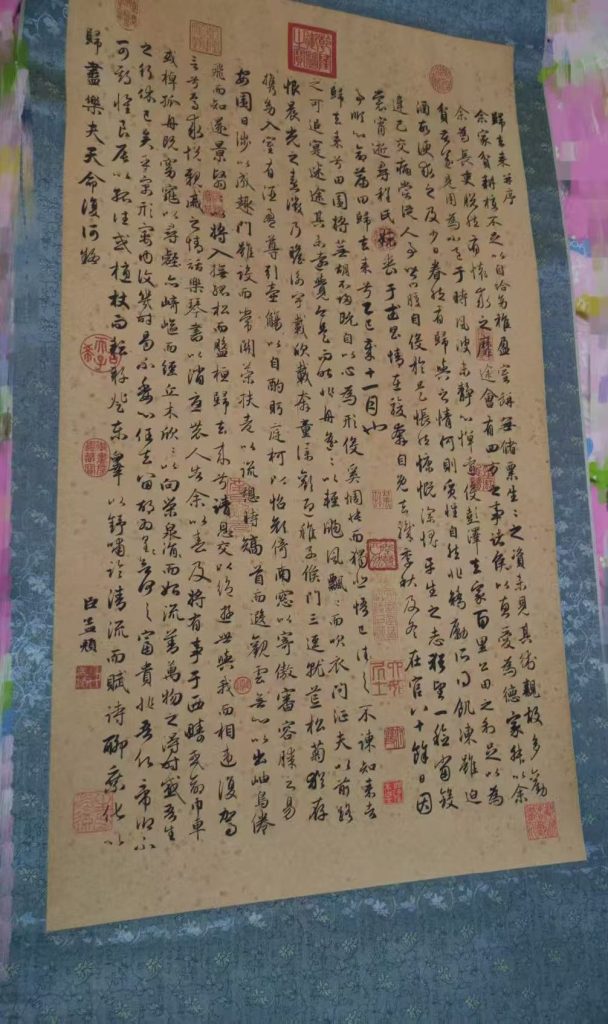 歸去來并序
余家貧耕植不足以自給幼稚盈室缾無儲粟生ミ之資未見其術親故多勸
余為長吏脫然有懷求之靡途會有四方之事諸侯以惠愛為德家叔以余
貧苦遂見用為小邑于時風波未靜心憚遠役彭澤去家百里公田之利足以為
酒故便求之及少日眷然有歸與之情何則質性自然非矯勵所得飢凍雖迫
違己交病嘗從人事皆口腹自役於是悵然慷慨深愧平生之志猶望一稔當斂
裳宵逝尋程氏妹喪于武昌情在駿奔自免去職季秋及冬在官八十餘日因
事順心命篇曰歸去來兮乙巳歲十一月也
歸去來兮田園將蕪胡不歸既自以心為形役奚惆悵而獨悲悟已往之不諫知來者
之可追寔迷途其未遠覺今是而昨非舟遙ミ以輕颺風飄ミ而吹衣問征夫以前路
恨晨光之熹微乃瞻衡宇載欣載奔童僕歡迎稚子候門三逕就荒松菊猶存
攜幼入室有酒盈尊引壺觴以自酌眄庭柯以怡顏倚南窓以寄傲審容膝之易
安園日涉以成趣門雖設而常關策扶老以流憩時矯首而遐觀雲無心以出岫鳥倦
飛而知還景翳ミ以將入撫孤松而盤桓歸去來兮請息交以絕遊世與我而相違復駕
言兮焉求悅親戚之情話樂琴書以消憂農人告余以春及將有事于西疇或命巾車
或棹孤舟既窈窕以尋壑亦崎嶇而經丘木欣ミ以向榮泉涓ミ而始流善萬物之得時感吾生
之行休已矣乎寓形宇內復幾時曷不委心任去留胡為遑ミ欲何之富貴非吾願帝鄉不
可期懷良辰以孤往或植杖而耘耔登東皋以舒嘯臨清流而賦詩聊乘化以
歸盡樂夫天命復何疑
臣孟頫